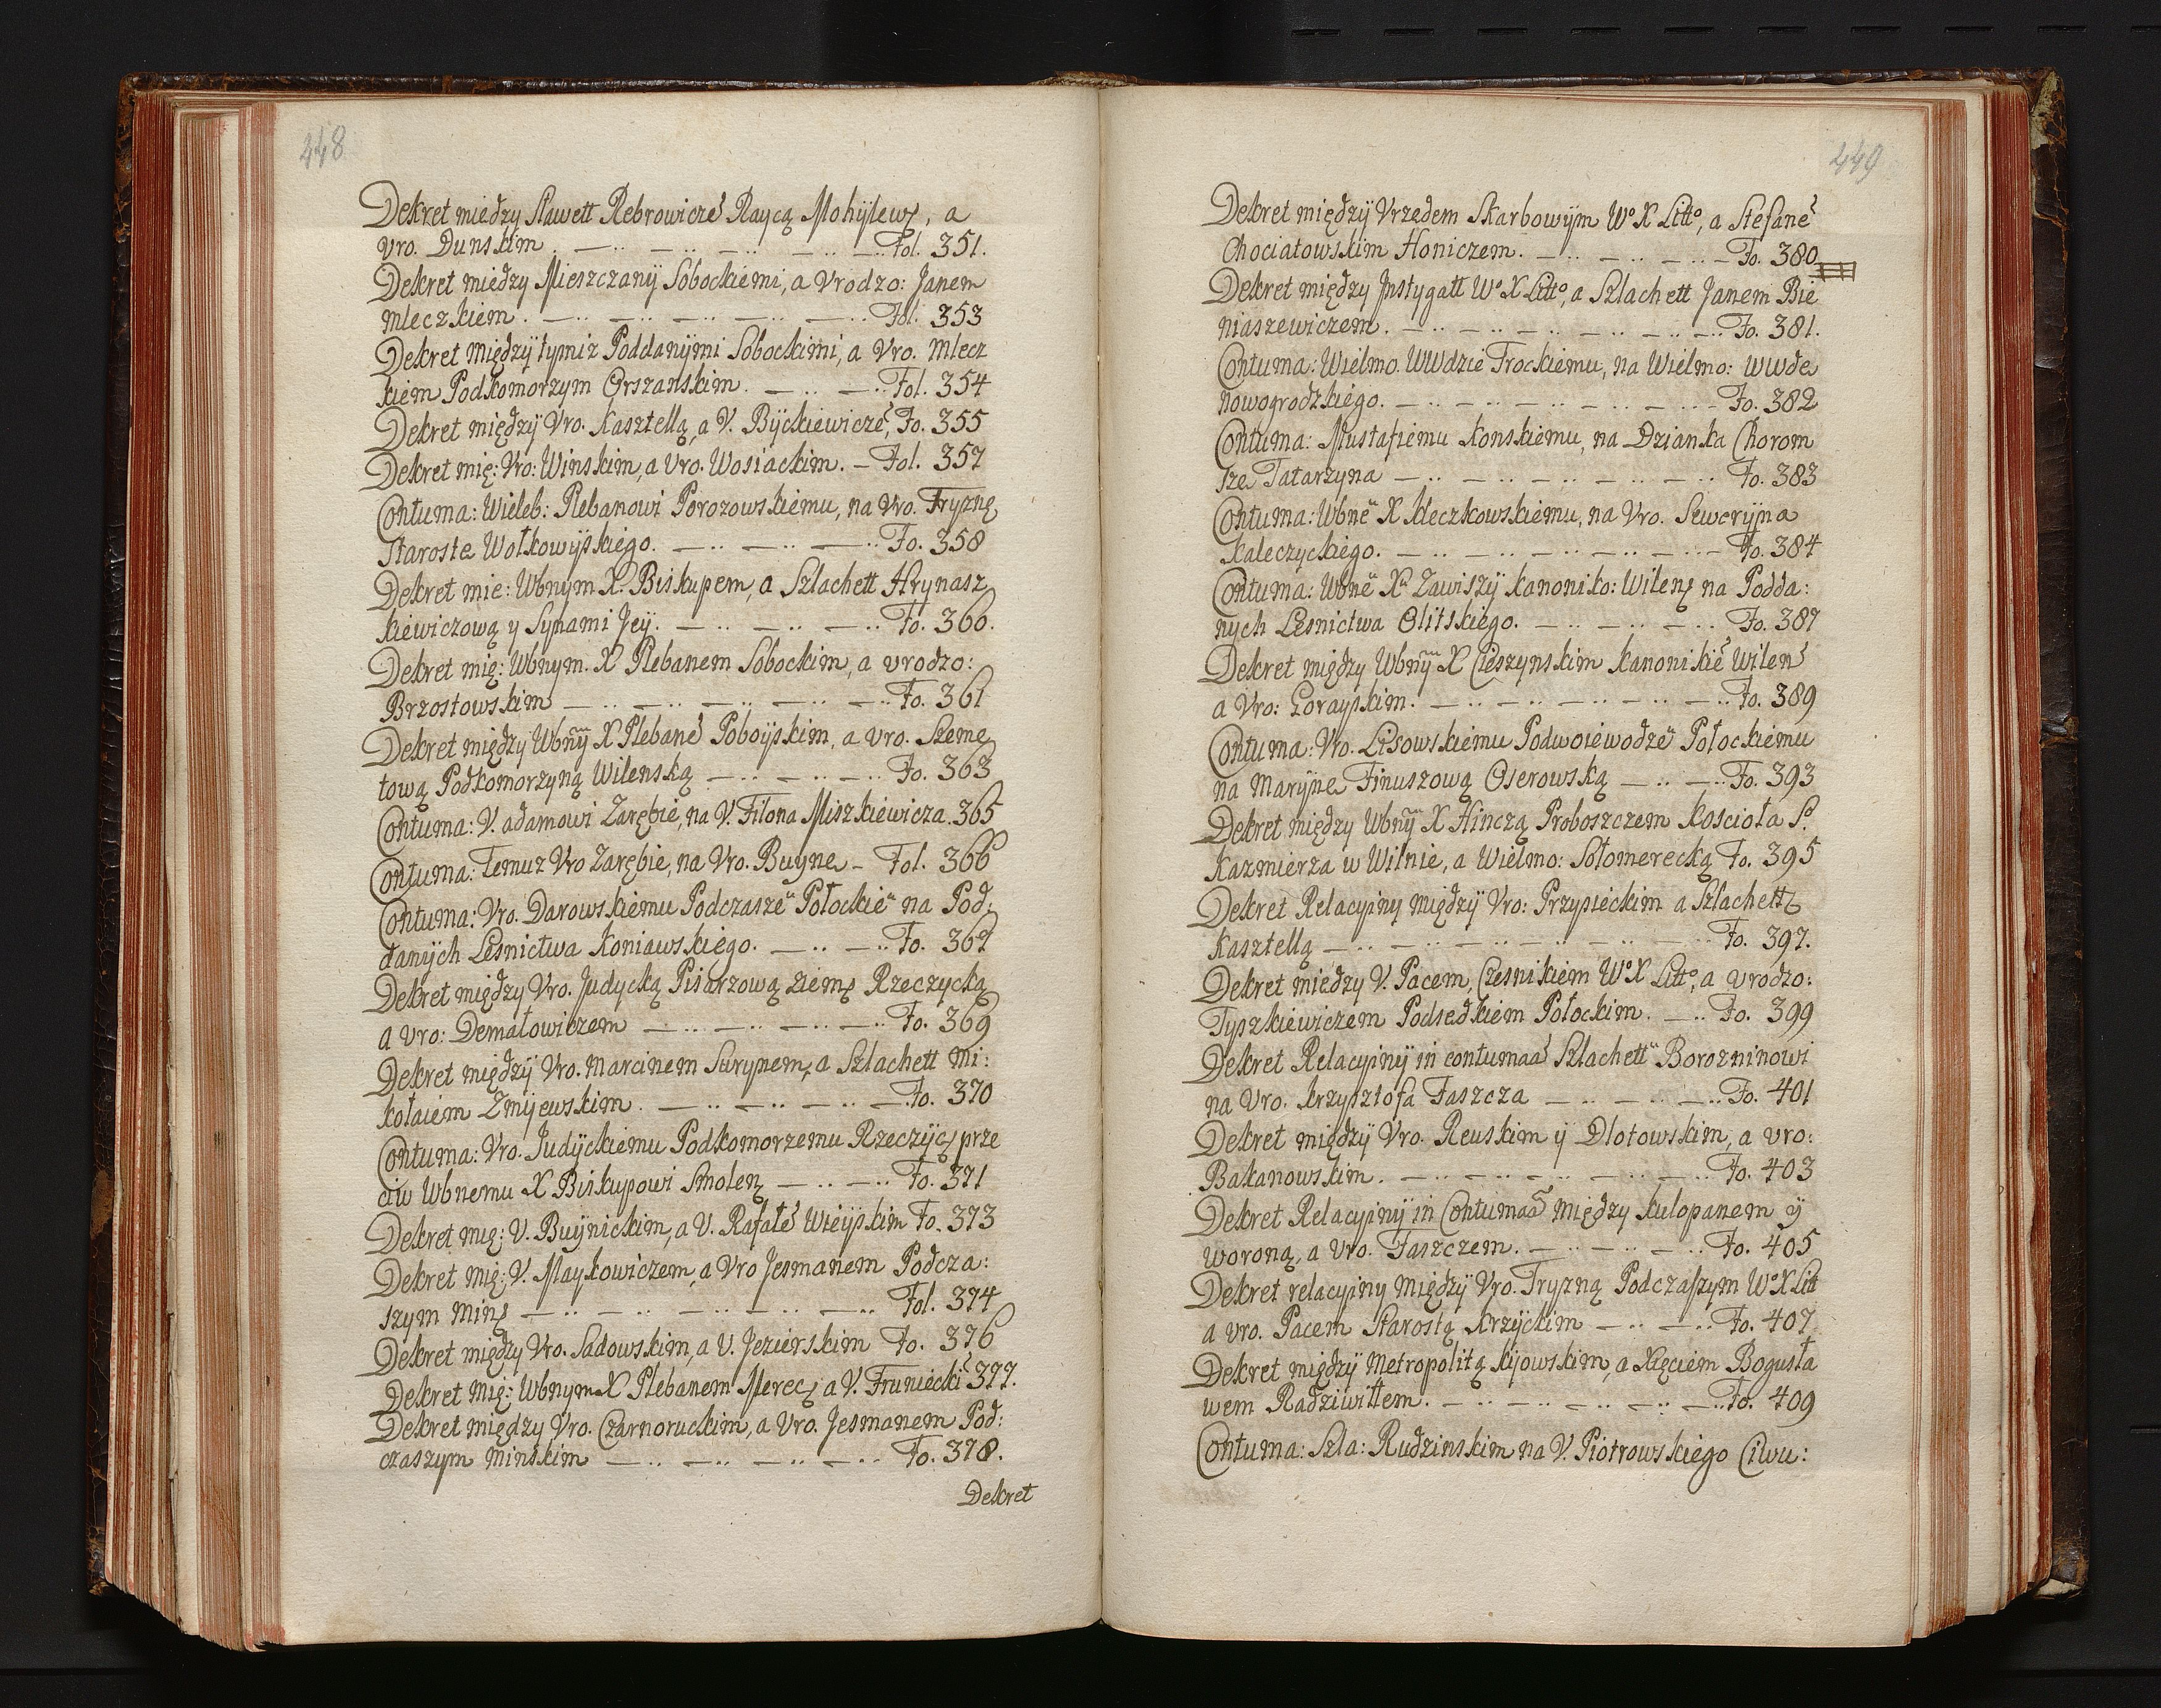 448
Dekret miedzy Sławett Rebrowicze Raycą Mohylews, a
Vro. Dunskim . — .. — .. — .. — .. Fol. 351.
Dekret miedzy Mieszczany Sobockiemi, a Vrodzo: Janem
Mleczkiem . — .. — .. — .. — .. Fol. 353
Dekret Między tymiz Poddanymi Sobockimi, a Vro. Mlecz
kiem Podkomorzym Orszanskim . — .. — .. Fol. 354
Dekret między Vro. Kasztellą, a V. Byckiewicze, Fo. 355
Dekret mię: Vro: Winskim, a Vro. Wosiackim. — Fol. 357
Contuma: Wieleb: Plebanowi Porozowskiemu, na Vro. Tryznę
Staroste Wołkowyskiego. — .. — .. — .. Fo. 358
Dekret mie: Wbnym X. Biskupem, a Szlachett Hrynasz
kiewiczową y Synami Jey. — .. — .. — .. Fo. 360.
Dekret mię: Wbnym. X Plebanem Sobockim, a vrodzo:
Brzostowskim — .. — .. — .. — .. — .. Fo. 361
Dekret między Wbnÿ X Plebane Poboyskim, a vro. Szeme
tową Podkomorzyną Wilenską — .. — .. — .. Fo. 363
Contuma: V. adamowi Zarębie, na V. Filona Miszkiewicza. 365
Contuma: Temuz Vro Zarębie, na Vro. Buyne – Fol. 366
Contuma: Vro. Darowskiemu Podczasze Połockie na Pod:
danych Lesnictwa Koniawskiego. — .. — .. Fo. 367
Dekret między Vro. Judycką Pisarzową ziems Rzeczycką
a vro: Demałowiczem — .. — .. — .. — .. Fo. 369
Dekret między Vro. Marcinem Surynem, a Szlachett Mi:
kołaiem Zmijewskim . — .. — .. — .. — Fo. 370
Contuma: Vro. Judyckiemu Podkomorzemu Rzeczyc, prze
ciw Wbnemu X Biskupowi Smolen — .. — .. Fo. 371
Dekret mię: V. Buynickim, a V. Rafałe Wieyskim Fo. 373
Dekret mię: V. Maykowiczem, a Vro Jesmanem Podcza:
szym Mins — .. — .. — .. — .. — .. Fol. 374
Dekret między Vro. Sadowskim, a V. Jezierskim Fo. 376
Dekret Mię: Wbnym X Plebanem Merec, a V. Fruniecki 377.
Dekret między Vro. Czarnoruckim, a Vro. Jesmanem Pod:
czaszym Minskim — .. — .. — .. — .. Fo. 378.
Dekret
449
Dekret między Vrzędem Skarbowym Wo X Litto, a Stefane
Chociatowskim Honiczem. — .. — .. — .. — Fo. 380
Dekret między Instygatt Wo X Litto, a Szlachett Janem Bie
niaszewiczem. — .. — .. — .. — .. — .. Fo. 381.
Contuma: Wielmo. WWdzie Trockiemu, na Wielmo: wwde
nowogrodzkiego. — .. — .. — .. — .. — Fo. 382
Contuma: Mustafiemu Konskiemu, na Dzianka Chorom
sze Tatarzyna — .. — .. — .. — .. — .. Fo. 383
Contuma: Wbne X Kleczkowskiemu, na Vro. Seweryna
Kaleczyckiego. — .. — .. — .. — .. — Fo. 384
Contuma: Wbne X Zawiszy kanoniko: Wilens na Podda:
nych Lesnictwa Olitskiego. — .. — .. — .. Fo. 387
Dekret między Wbnÿ X Cieszynskim kanonikie Wilen
a Vro: Gorayskim. — .. — .. — .. — .. — .. Fo. 389
Contuma: Vro. Lisowskiemu Podwoiewodze Połockiemu
na Maryne Finuszową Oserowską — .. — .. Fo. 393
Dekret między Wbnÿ X Hinczą Proboszczem Kosciola S.
Kazmierza w Wilnie, a Wielmo: Sołomerecką Fo. 395
Dekret Relacyiny między Vro: Przysieckim a Szlachett
Kasztellą — .. — .. — .. — .. — .. — .. Fo. 397.
Dekret miedzy V. Pacem, Czesnikiem Wo X Litto, a vrodzo:
Tyszkiewiczem Podsedkiem Połockim. — .. Fo. 399
Dekret Relacyiny in contumaa Szlachett Borozninowi
na Vro. krzysztofa Faszcza — .. — .. — .. Fo. 401
Dekret między Vro. Reuskim y Dlotowskim, a vro:
Bakanowskim. — .. — .. — .. — .. — .. Fo. 403
Dekret Relacyiny in Contumaa między kulopanem y
woroną, a Vro. Faszczem. — .. — .. — .. Fo. 405
Dekret relacyiny między Vro. Tryzną Podczaszym Wo X Litt
a vro. Pacem Starostą Krzyckim — .. — .. Fo. 407
Dekret między Metropolitą kijowskim, a Xięciem Bogusła
wem Radziwiłłem. — .. — .. — .. — .. Fo. 409
Contuma: Szla: Rudzinskim na V. Piotrowskiego Ciwu: